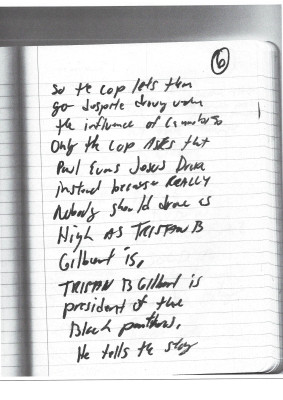 6
So the cop lets them
go despite driving under
the influence of Cannabis
Only the cop Asks that
Paul Evans Josus Drive
instead because REALLY
Nobody should drive as
High AS TRISTAN B
Gilbert is,
TRISTAN B Gilbert is
president of the
Black panthers,
He tells the story